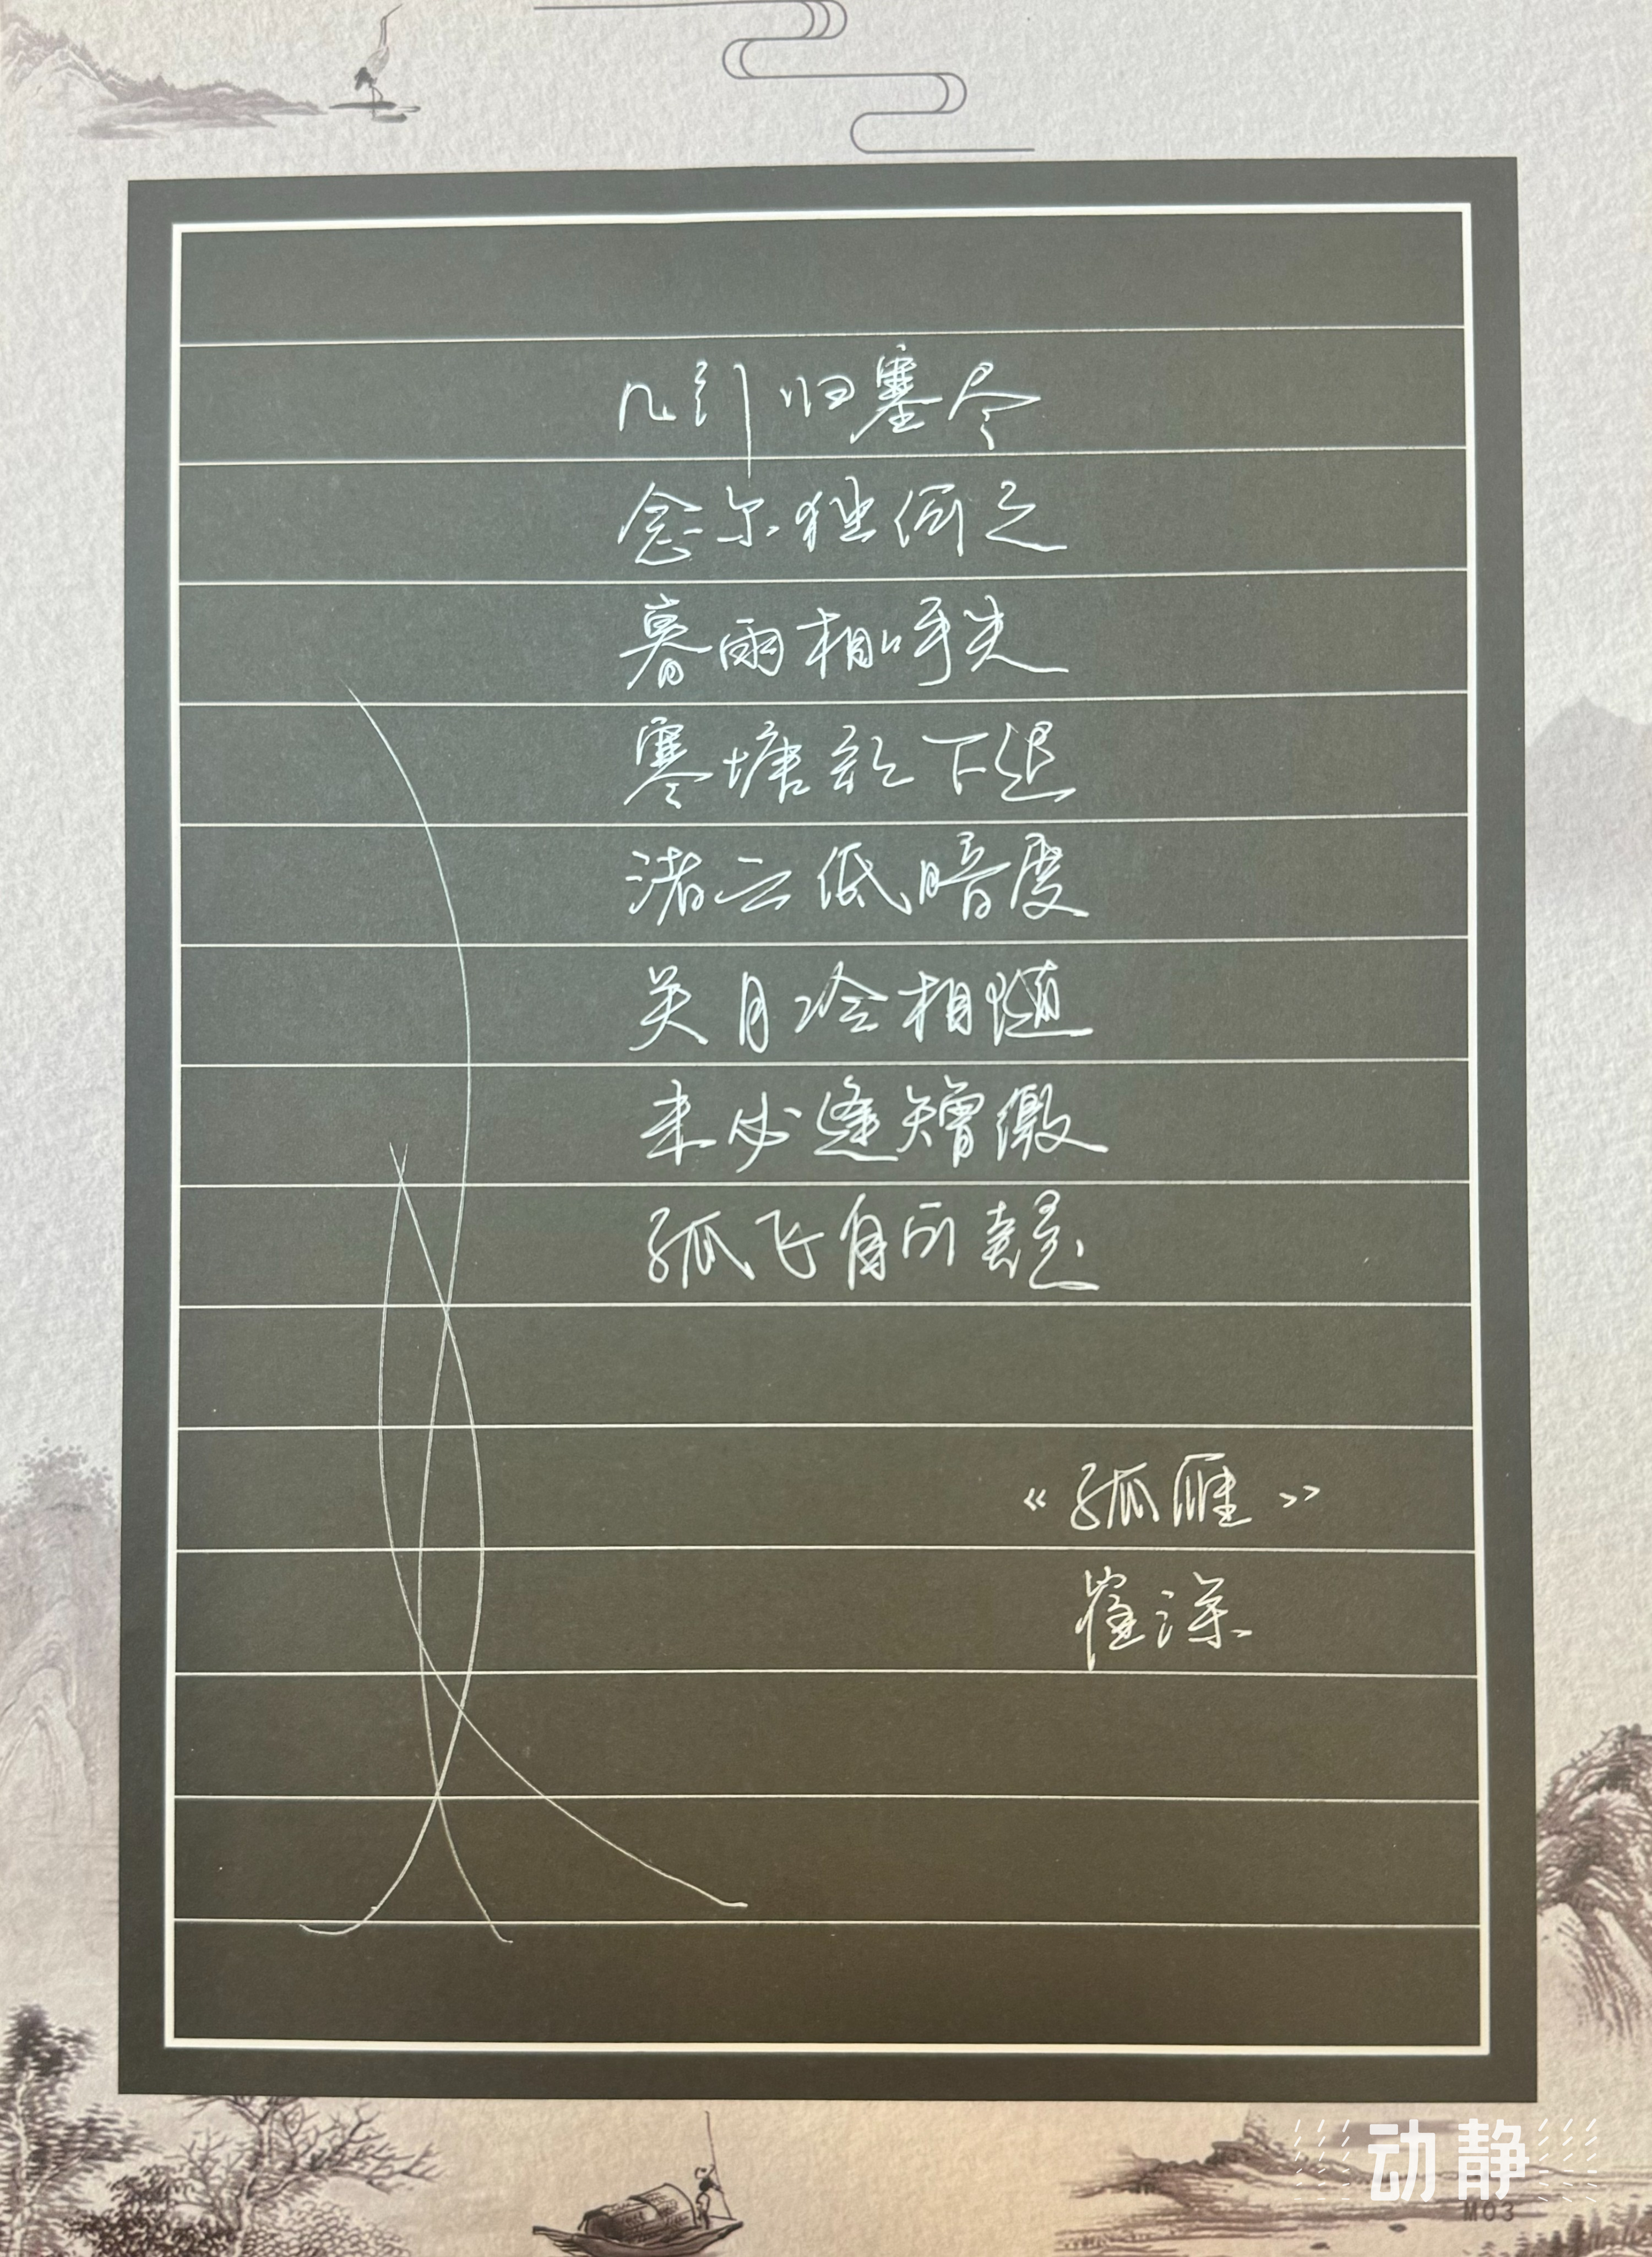 几行归塞尽
念尔独何之
暮雨相呼失
寒塘欲下迟
渚云低暗度
关月冷相随
未必逢矰缴
孤飞自可疑
《孤雁》
崔涂
动静
M03